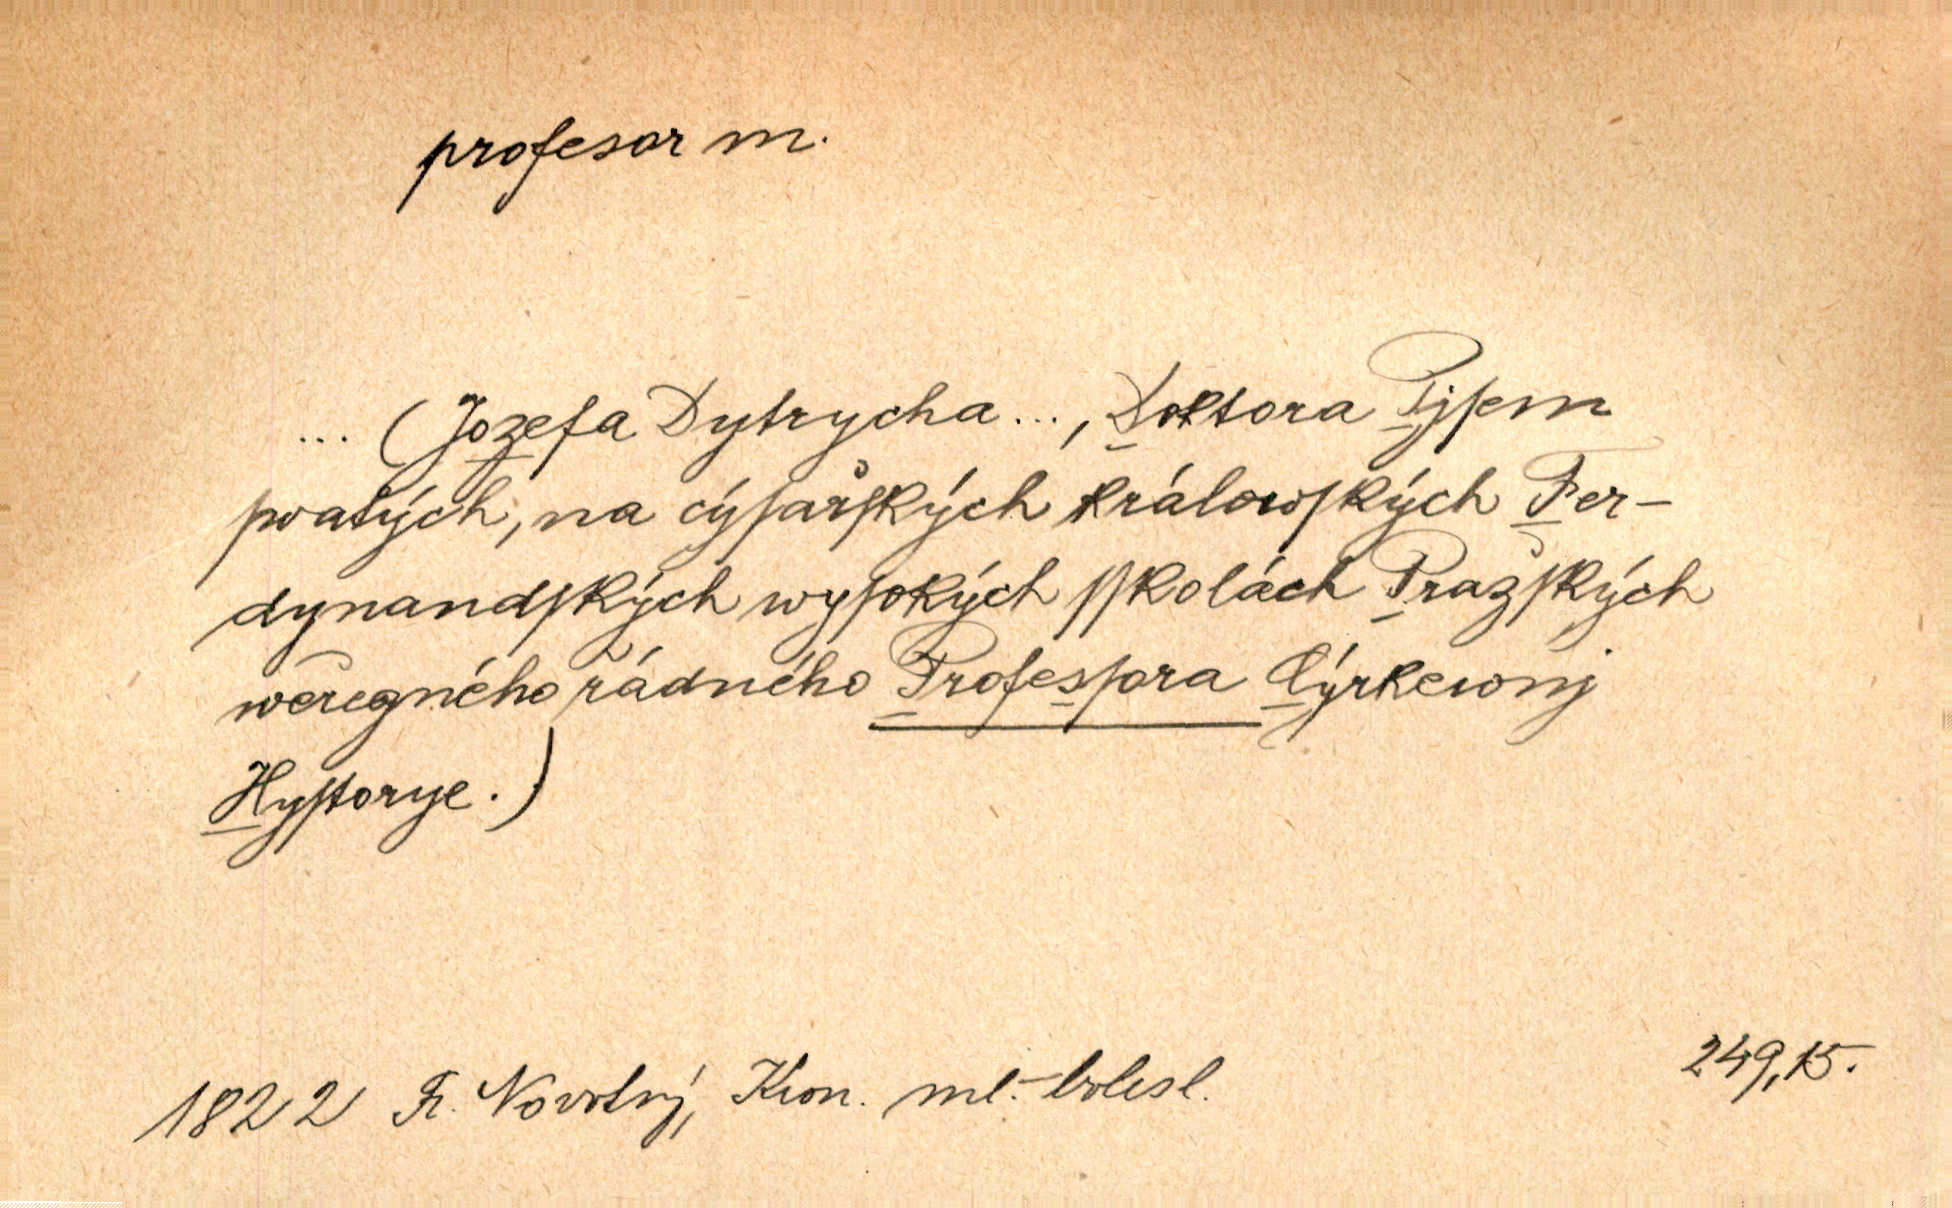 profesor m.
... (Jozefa Dytrycha ..., Doktora Pjſem
ſwatých, na cýſařſkých králowſkých Fer-
dynandſkých wyſokých ſſkolách Pražſkých
weřegného řádného Profesſora Cýrkewnj
Hyſtorye.)
249,15.
1822 Fr. Novotný, Kron. ml.-bolesl.